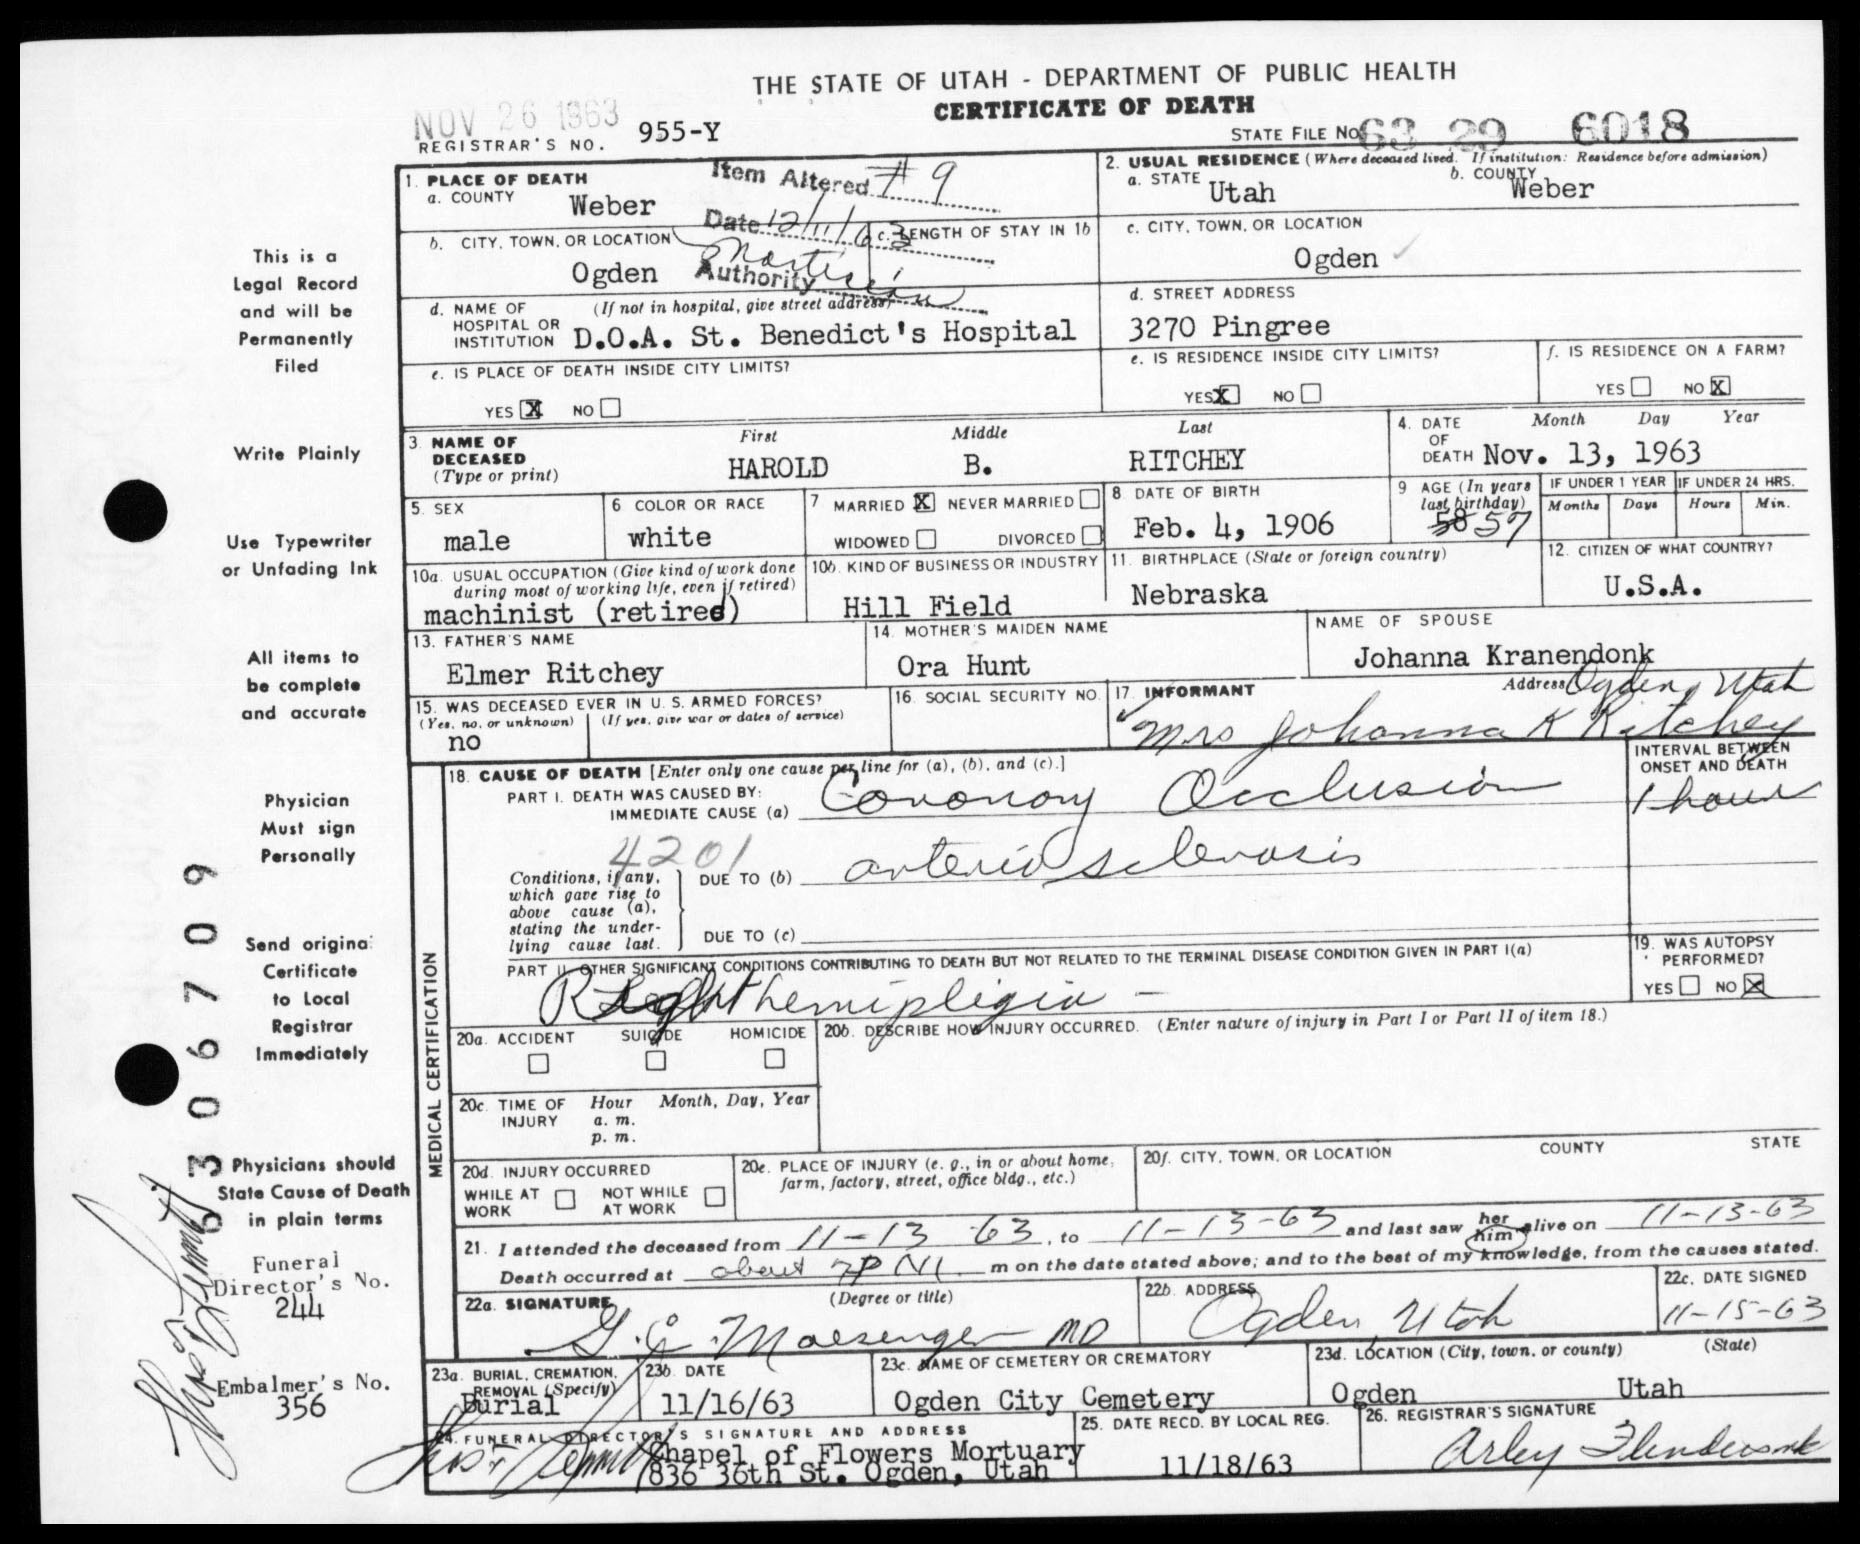 THE STATE OF UTAH - DEPARTMENT OF PUBLIC HEALTH
CERTIFICATE OF DEATH
NOV 26 1963
REGISTRAR'S NO. 955-Y
STATE FILE NO. 63 29 6018
This is a
Legal Record
and will be
Permanently
Filed
Write Plainly
Use Typewriter
or Unfading Ink
All items to
be complete
and accurate
Physician
Must sign
Personally
Send original
Certificate
to Local
Registrar
Immediately
Physicians should
State Cause of Death
in plain terms
Funeral
Director's No.
244
Embalmer's No.
356
6306709
1. PLACE OF DEATH
a. COUNTY Weber
Item Altered #9
Date 12/11/63
Authority Mortician
b. CITY, TOWN, OR LOCATION Ogden
c. LENGTH OF STAY IN 1b
d. NAME OF HOSPITAL OR INSTITUTION (If not in hospital, give street address)
D.O.A. St. Benedict's Hospital
e. IS PLACE OF DEATH INSIDE CITY LIMITS?
YES X NO
2. USUAL RESIDENCE (Where deceased lived. If institution: Residence before admission)
a. STATE Utah b. COUNTY Weber
c. CITY, TOWN, OR LOCATION
Ogden
d. STREET ADDRESS
3270 Pingree
e. IS RESIDENCE INSIDE CITY LIMITS?
YES X NO
f. IS RESIDENCE ON A FARM?
YES NO X
3. NAME OF DECEASED (Type or print) First Middle Last
HAROLD B. RITCHEY
4. DATE OF DEATH Month Day Year
Nov. 13, 1963
5. SEX
male
6 COLOR OR RACE
white
7 MARRIED X NEVER MARRIED
WIDOWED DIVORCED
8 DATE OF BIRTH
Feb. 4, 1906
9 AGE (In years last birthday)
58 57
IF UNDER 1 YEAR IF UNDER 24 HRS.
Months Days Hours Min.
10a. USUAL OCCUPATION (Give kind of work done during most of working life, even if retired)
machinist (retired)
10b. KIND OF BUSINESS OR INDUSTRY
Hill Field
11. BIRTHPLACE (State or foreign country)
Nebraska
12. CITIZEN OF WHAT COUNTRY?
U.S.A.
13. FATHER'S NAME
Elmer Ritchey
14. MOTHER'S MAIDEN NAME
Ora Hunt
NAME OF SPOUSE
Johanna Kranendonk
15. WAS DECEASED EVER IN U. S. ARMED FORCES?
(Yes, no, or unknown) (If yes, give war or dates of service)
no
16. SOCIAL SECURITY NO.
17. INFORMANT Address Ogden, Utah
Mrs Johanna K Ritchey
MEDICAL CERTIFICATION
18. CAUSE OF DEATH [Enter only one cause per line for (a), (b), and (c).]
PART I. DEATH WAS CAUSED BY:
IMMEDIATE CAUSE (a) Coronory Occlusion
INTERVAL BETWEEN ONSET AND DEATH
1 hour
4201
Conditions, if any, which gave rise to above cause (a), stating the underlying cause last.
DUE TO (b) arterio sclerosis
DUE TO (c)
PART II. OTHER SIGNIFICANT CONDITIONS CONTRIBUTING TO DEATH BUT NOT RELATED TO THE TERMINAL DISEASE CONDITION GIVEN IN PART I(a)
Right hemiplegia -
19. WAS AUTOPSY PERFORMED?
YES NO X
20a. ACCIDENT SUICIDE HOMICIDE
20b. DESCRIBE HOW INJURY OCCURRED. (Enter nature of injury in Part I or Part II of item 18.)
20c. TIME OF INJURY Hour Month, Day, Year
a. m.
p. m.
20d. INJURY OCCURRED
WHILE AT WORK NOT WHILE AT WORK
20e. PLACE OF INJURY (e. g., in or about home, farm, factory, street, office bldg., etc.)
20f. CITY, TOWN, OR LOCATION COUNTY STATE
21. I attended the deceased from 11-13-63, to 11-13-63 and last saw her him alive on 11-13-63
Death occurred at about 7PM m on the date stated above; and to the best of my knowledge, from the causes stated.
22a. SIGNATURE (Degree or title)
MD
22b. ADDRESS
Ogden Utah
22c. DATE SIGNED
11-15-63
23a. BURIAL, CREMATION, REMOVAL (Specify)
Burial
23b. DATE
11/16/63
23c. NAME OF CEMETERY OR CREMATORY
Ogden City Cemetery
23d. LOCATION (City, town, or county) (State)
Ogden Utah
24. FUNERAL DIRECTOR'S SIGNATURE AND ADDRESS
Chapel of Flowers Mortuary
836 36th St. Ogden, Utah
25. DATE RECD. BY LOCAL REG.
11/18/63
26. REGISTRAR'S SIGNATURE
Arley